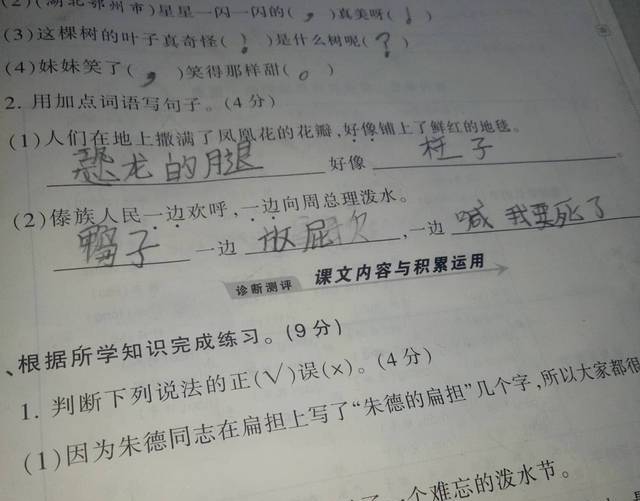 (2)(湖北鄂州市)星星一闪一闪的(，)真美呀(！)
(3)这棵树的叶子真奇怪(！)是什么树呢(？)
(4)妹妹笑了(，)笑得那样甜(。)
2. 用加点词语写句子。(4分)
(1)人们在地上撒满了凤凰花的花瓣,好像铺上了鲜红的地毯。
恐龙的腿 好像 柱子。
(2)傣族人民一边欢呼,一边向周总理泼水。
鸭子 一边 放屁 ,一边 喊我要死了
诊断测评 课文内容与积累运用
、根据所学知识完成练习。(9分)
1. 判断下列说法的正(√)误(×)。(4分)
(1)因为朱德同志在扁担上写了“朱德的扁担”几个字,所以大家都很
个难忘的泼水节。